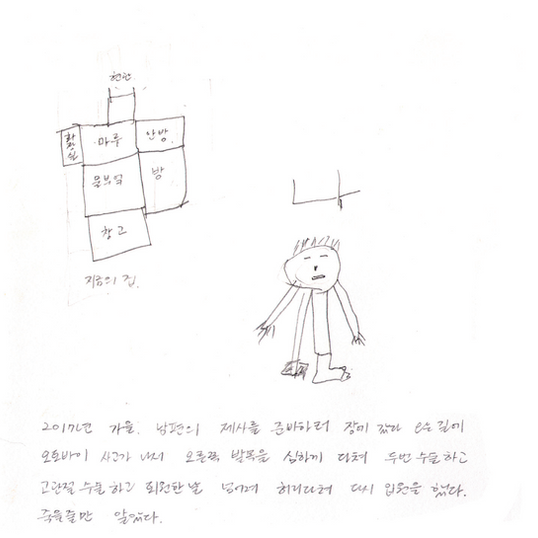 현관
화장실
마루
안방
윗부엌
방
창고
지금의 집.
나
2017년 가을. 남편의 제사를 준비하러 장에 갔다 오는 길에
오토바이 사고가 나서 오른쪽 발목을 심하게 다쳐 두번 수술하고
고관절 수술하고 퇴원한 날 넘어져 허리다쳐 다시 입원을 했다.
죽을줄만 알았다.